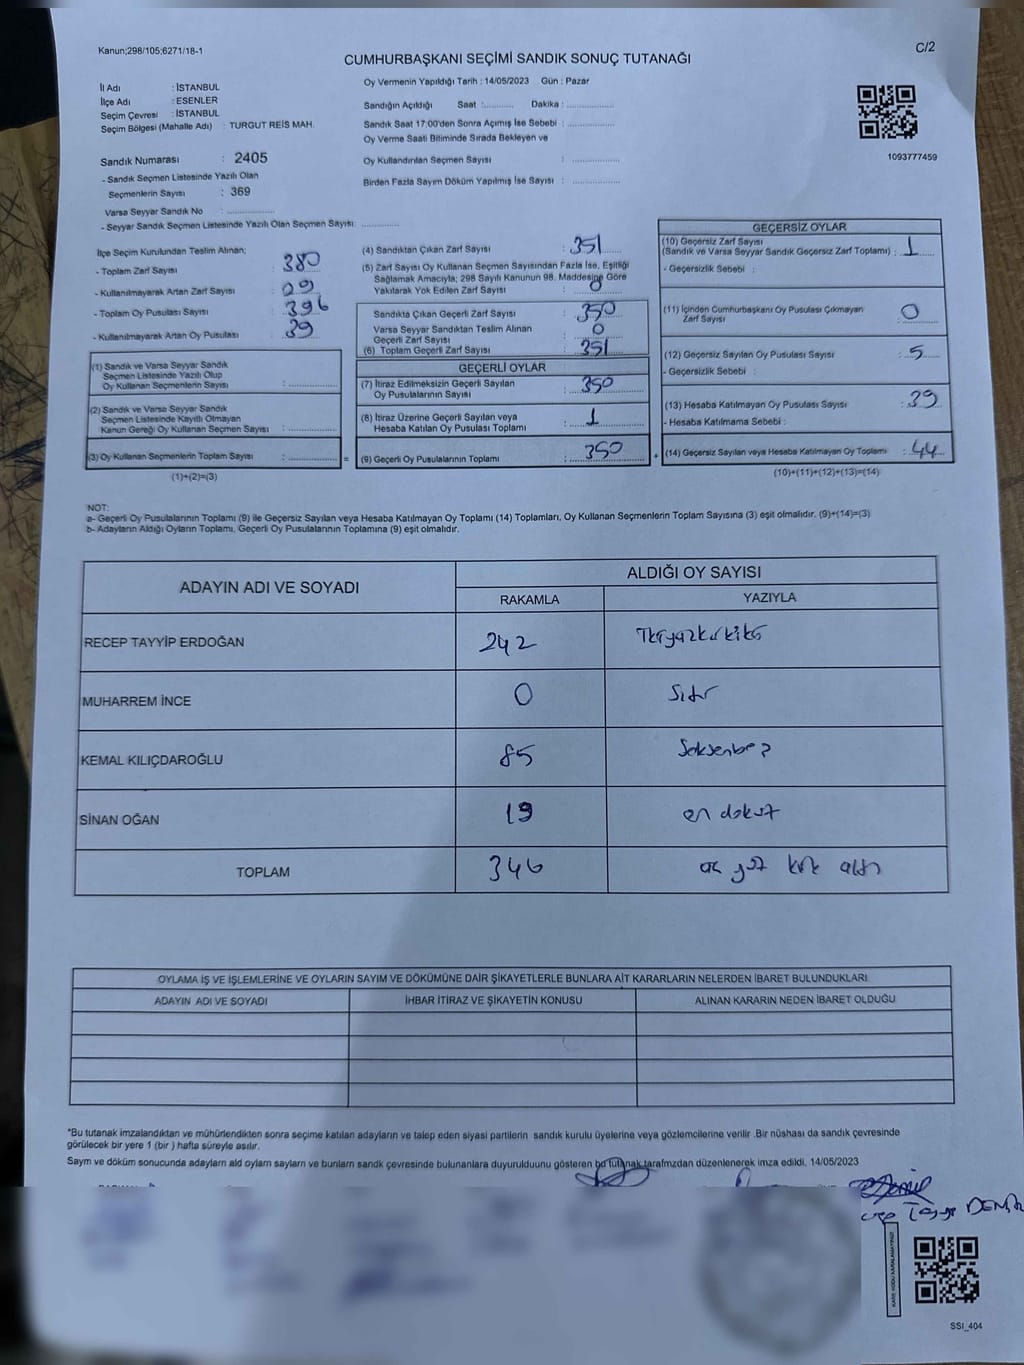 Kanun;298/105;6271/18-1
C/2
CUMHURBAŞKANI SEÇİMİ SANDIK SONUÇ TUTANAĞI
İl Adı : İSTANBUL
İlçe Adı : ESENLER
Seçim Çevresi : İSTANBUL
Seçim Bölgesi (Mahalle Adı) : TURGUT REİS MAH.
Sandık Numarası : 2405
- Sandık Seçmen Listesinde Yazılı Olan
Seçmenlerin Sayısı : 369
Varsa Seyyar Sandık No : ..............
- Seyyar Sandık Seçmen Listesinde Yazılı Olan Seçmen Sayısı: ............
Oy Vermenin Yapıldığı Tarih : 14/05/2023 Gün : Pazar
Sandığın Açıldığı Saat :......... Dakika : ..............
Sandık Saat 17:00'den Sonra Açımış İse Sebebi : ..............
Oy Verme Saati Bitiminde Sırada Bekleyen ve
Oy Kullandırılan Seçmen Sayısı : ..............
Birden Fazla Sayım Döküm Yapılmış İse Sayısı : ..............
1093777459
İlçe Seçim Kurulundan Teslim Alınan;
- Toplam Zarf Sayısı : 380
- Kullanılmayarak Artan Zarf Sayısı : 29
- Toplam Oy Pusulası Sayısı : 396
- Kullanılmayarak Artan Oy Pusulası : 39
(1) Sandık ve Varsa Seyyar Sandık
Seçmen Listesinde Yazılı Olup
Oy Kullanan Seçmenlerin Sayısı : ..............
(2) Sandık ve Varsa Seyyar Sandık
Seçmen Listesinde Kayıtlı Olmayan
Kanun Gereği Oy Kullanan Seçmen Sayısı : ..............
(3) Oy Kullanan Seçmenlerin Toplam Sayısı : .............. =
(1)+(2)=(3)
(4) Sandıktan Çıkan Zarf Sayısı : 351
(5) Zarf Sayısı Oy Kullanan Seçmen Sayısından Fazla İse, Eşitliği
Sağlamak Amacıyla; 298 Sayılı Kanunun 98. Maddesine Göre
Yakılarak Yok Edilen Zarf Sayısı : 0
Sandıkta Çıkan Geçerli Zarf Sayısı : 350
Varsa Seyyar Sandıktan Teslim Alınan
Geçerli Zarf Sayısı : 0
(6) Toplam Geçerli Zarf Sayısı : 351
GEÇERLİ OYLAR
(7) İtiraz Edilmeksizin Geçerli Sayılan
Oy Pusulalarının Sayısı : 350
(8) İtiraz Üzerine Geçerli Sayılan veya
Hesaba Katılan Oy Pusulası Toplamı : 1
(9) Geçerli Oy Pusulalarının Toplamı : 350 +
GEÇERSİZ OYLAR
(10) Geçersiz Zarf Sayısı
(Sandık ve Varsa Seyyar Sandık Geçersiz Zarf Toplamı) : 1
- Geçersizlik Sebebi :
(11) İçinden Cumhurbaşkanı Oy Pusulası Çıkmayan
Zarf Sayısı : 0
(12) Geçersiz Sayılan Oy Pusulası Sayısı : 5
- Geçersizlik Sebebi :
(13) Hesaba Katılmayan Oy Pusulası Sayısı : 39
- Hesaba Katılmama Sebebi :
(14) Geçersiz Sayılan veya Hesaba Katılmayan Oy Toplamı : 44
(10)+(11)+(12)+(13)=(14)
NOT:
a- Geçerli Oy Pusulalarının Toplamı (9) ile Geçersiz Sayılan veya Hesaba Katılmayan Oy Toplamı (14) Toplamları, Oy Kullanan Seçmenlerin Toplam Sayısına (3) eşit olmalıdır. (9)+(14)=(3)
b- Adayların Aldığı Oyların Toplamı, Geçerli Oy Pusulalarının Toplamına (9) eşit olmalıdır.
ADAYIN ADI VE SOYADI
ALDIĞI OY SAYISI
RAKAMLA YAZIYLA
RECEP TAYYİP ERDOĞAN 242
MUHARREM İNCE 0 Sıfır
KEMAL KILIÇDAROĞLU 85 Seksenbeş
SİNAN OĞAN 19 on dokuz
TOPLAM 346 üç yüz kırk altı
OYLAMA İŞ VE İŞLEMLERİNE VE OYLARIN SAYIM VE DÖKÜMÜNE DAİR ŞİKAYETLERLE BUNLARA AİT KARARLARIN NELERDEN İBARET BULUNDUKLARI
ADAYIN ADI VE SOYADI İHBAR İTİRAZ VE ŞİKAYETİN KONUSU ALINAN KARARIN NEDEN İBARET OLDUĞU
*Bu tutanak imzalandıktan ve mühürlendikten sonra seçime katılan adayların ve talep eden siyasi partilerin sandık kurulu üyelerine veya gözlemcilerine verilir .Bir nüshası da sandık çevresinde
görülecek bir yere 1 (bir ) hafta süreyle asılır.
Saym ve döküm sonucunda adaylarn ald oylarn saylarn ve bunlarn sandk çevresinde bulunanlara duyurulduunu gösteren bu tutanak tarafmzdan düzenlenerek imza edildi. 14/05/2023
SSI_404